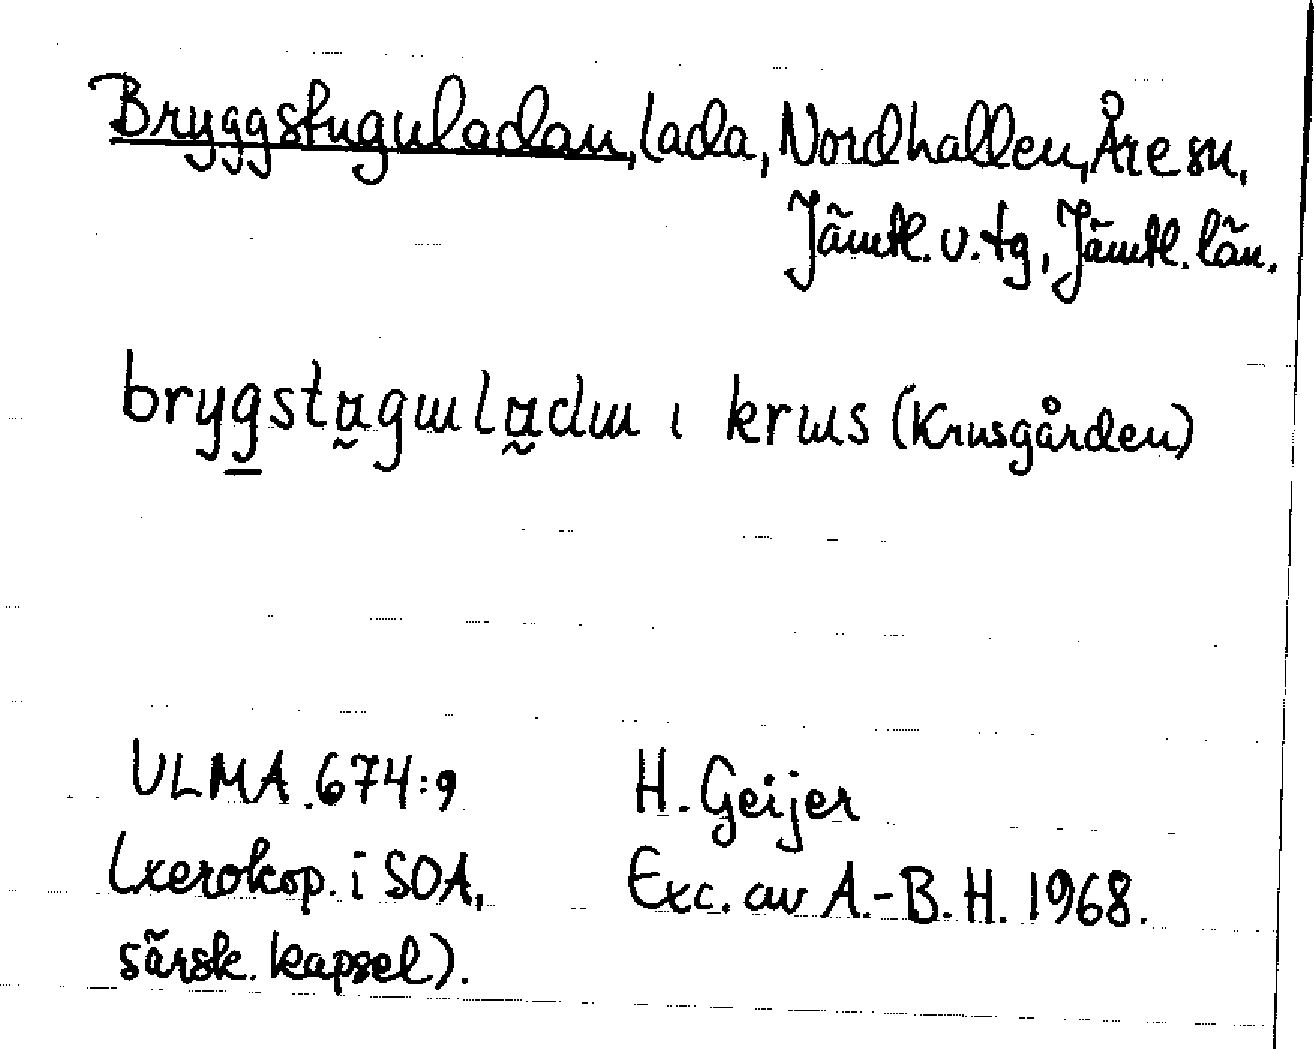 Bryggstuguladan, lada, Nordhallen, Åre sn,
Jämtl. v. tg, Jämtl. län.
brygstɑ̰gɯlɑ̰dɯ ı krɯs (Krusgården)
ULMA 674:9 H. Geijer
(xerokop. i SOA, Exc. av A.-B. H. 1968.
särsk. kapsel).